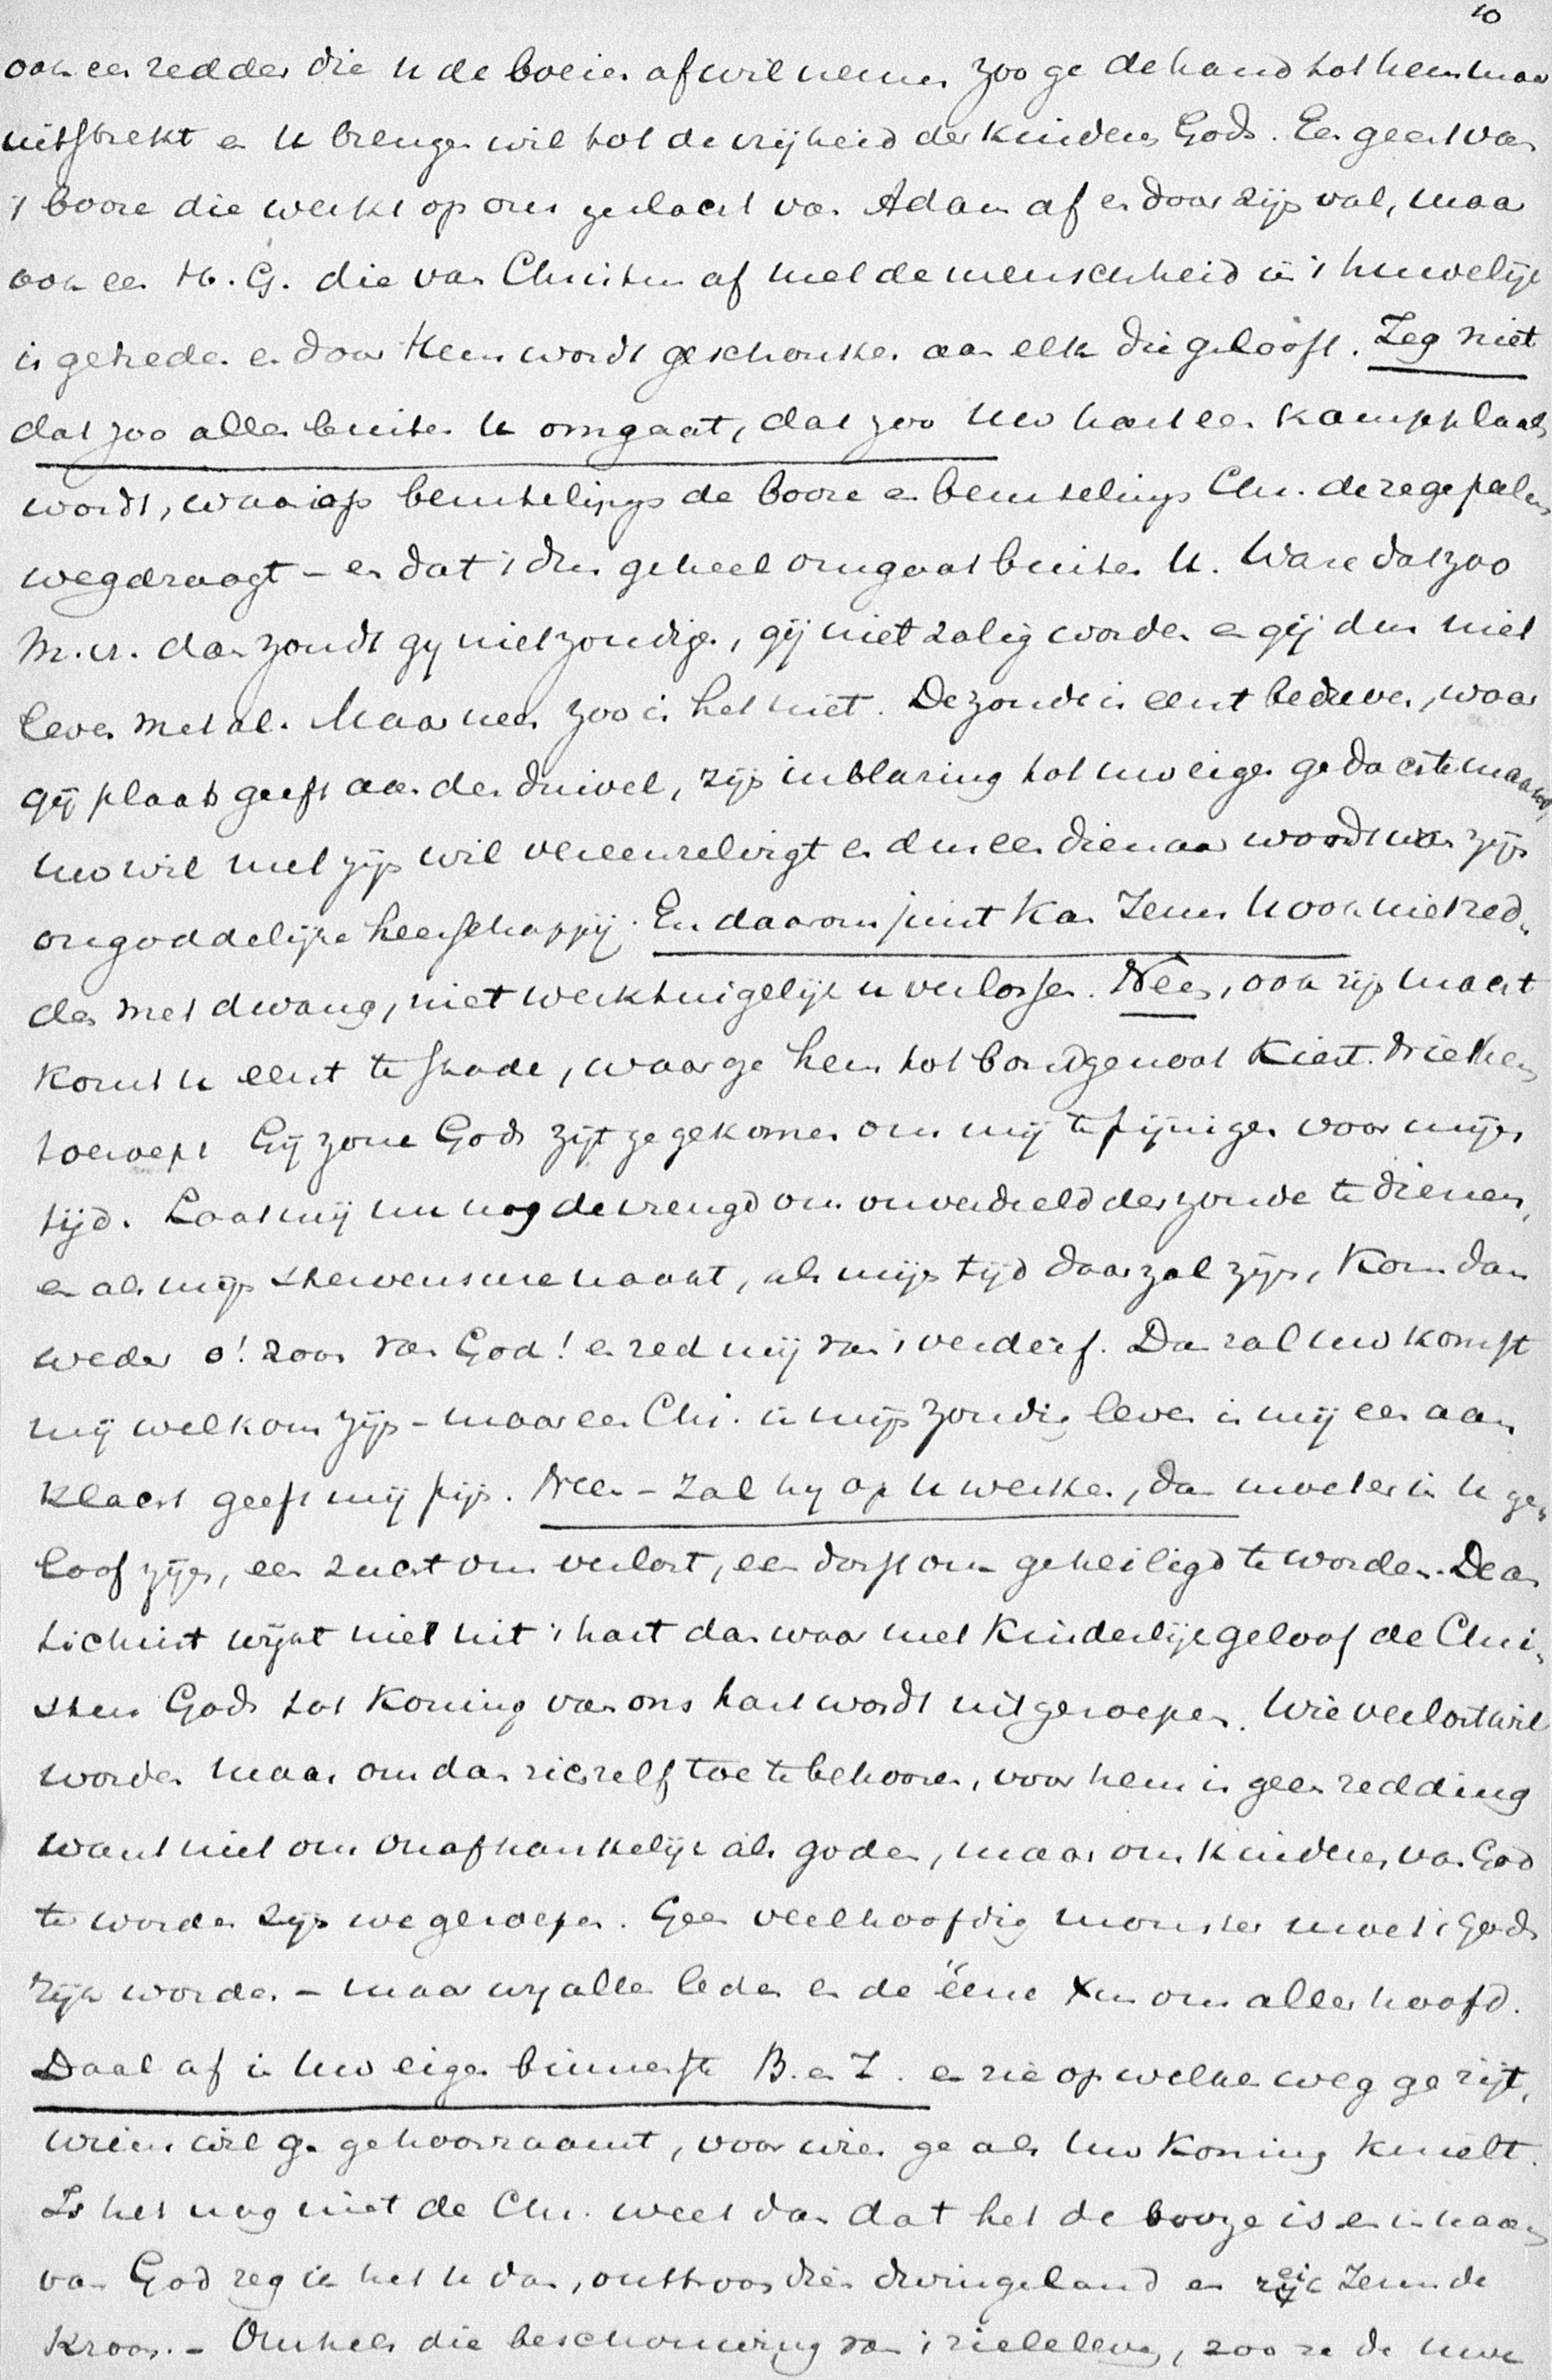 10
ook een redder die U de boeien afwil nemen zoo ge de hand tot hem maar
uitstrekt en U brengen wil tot de vrijheid der kinderen Gods. Een geest van
't booze die werkt op ons geslacht van Adam af en door zijn val, maar
ook een H. G. die van Christus af met de menschheid in 't huwelijk
is getreden en door Hem wordt geschonken aan elk die gelooft. Zeg niet
dat zoo alles buiten U omgaat, dat zoo uw hart een kampplaats
wordt, waarop beurtelings de booze en beurtelings Chr. de zegepalm
wegdraagt – en dat 't dus geheel omgaat buiten U. Ware dat zoo
M. V. dan zoudt gy niet zondigen, gij niet zalig worden en gij dus niet
leven met al. Maar neen zoo is het niet. De zonde is eerst bedreven, waar
gij plaats geeft aan den duivel, zijn inblazing tot uw eigen gedachte maakt,
uw wil met zijn wil vereenzelvigt en dus een dienaar wordt van zijn
ongoddelijke heerschappij. En daarom juist kan Jezus U ook niet red-
den met dwang, niet werktuigelijk u verlossen. Neen, ook zijn macht
komt u eerst te stade, waar ge hem tot bondgenoot kiest. Wie Hem
toeroept Gij zone Gods zijt ge gekomen om mij te pijnigen voor mijn
tijd. Laat mij nu nog de vreugd om onverdeeld der zonde te dienen,
en als mijn stervensure naakt, als mijn tijd daar zal zijn, kom dan
weder o! zoon van God! en red mij van 't verderf. Dan zal uw komst
mij welkom zijn – maar een Chr. in mijn zondig leven is mij een aan
klacht geeft mij pijn. Neen – zal hy op U werken, dan moet er in U ge-
loof zijn, een zucht om verlost, een dorst om geheiligd te worden. De an
tichrist wijkt niet uit 't hart dan waar met kinderlijk geloof de Chri-
stus Gods tot Koning van ons hart wordt uitgeroepen. Wie verlost wil
worden maar om dan zichzelf toe te behooren, voor hem is geen redding
want niet om onafhankelijk als goden, maar om kinderen van God
te worden zijn we geroepen. Geen veelhoofdig monster moet 't Gods
rijk worden – maar wy allen leden en de ééne Xus ons aller hoofd.
Daal af in Uw eigen binnenste B. en Z. en zie op welken weg ge zijt,
wiens wil ge gehoorzaamt, voor wien ge als Uw Koning knielt.
Is het nog niet de Chr. weet dan dat het de booze is en in naam
van God zeg ik het U dan, onttroon dien dwingeland en reik Jezus de
Kroon. – Omhels die beschouwing van 't zieleleven, zoo ze de uwe